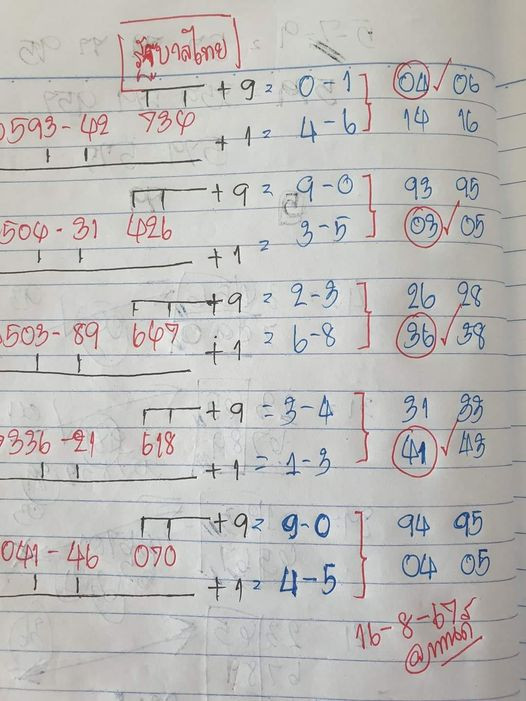 รัฐบาลไทย
+ 9 = 0 - 1 04 ✓ 06
593 - 42 734
+ 1 = 4 - 6 14 16
+ 9 = 9 - 0 93 95
504 - 31 426
+ 1 = 3 - 5 03 ✓ 05
+ 9 = 2 - 3 26 28
503 - 89 647
+ 1 = 6 - 8 36 ✓ 38
+ 9 = 3 - 4 31 33
336 - 21 618
+ 1 = 1 - 3 41 ✓ 43
+ 9 = 9 - 0 94 95
041 - 46 070
+ 1 = 4 - 5 04 05
16 - 8 - 67